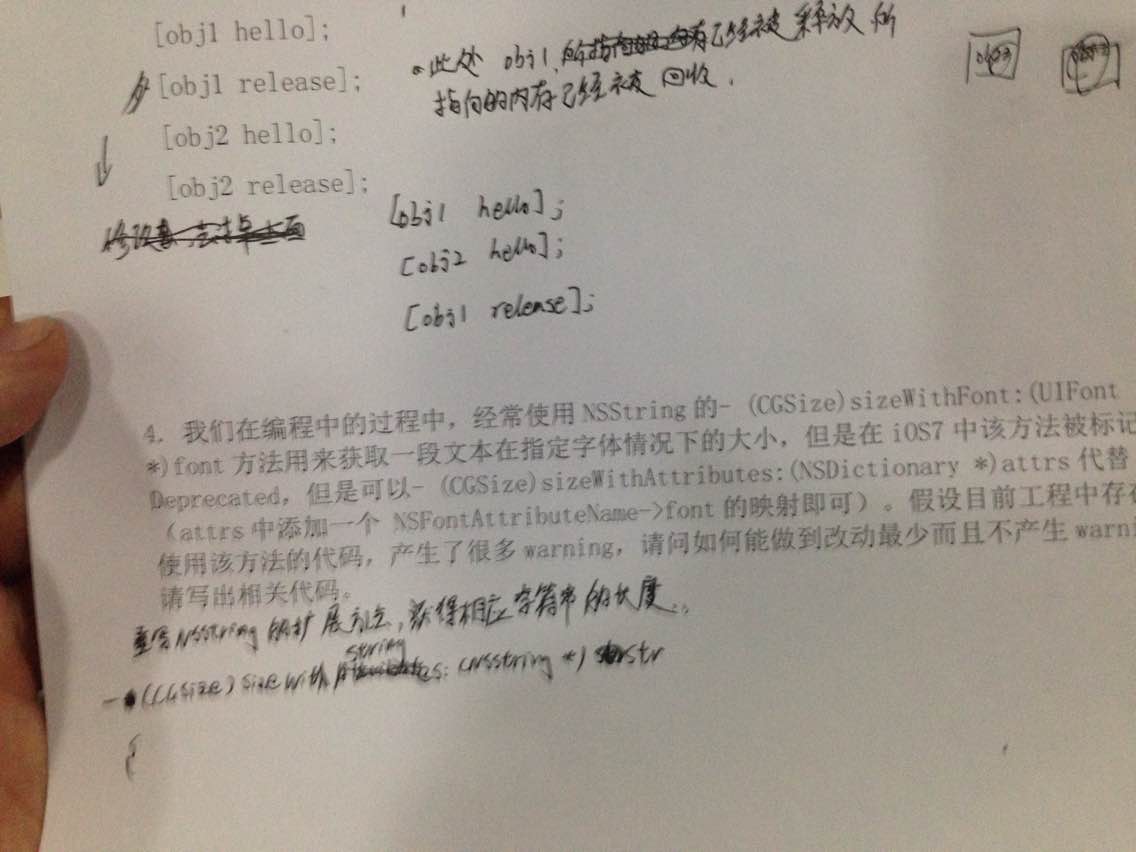 [obj1 hello];
[obj1 release];
[obj2 hello];
[obj2 release];
此处 obj1 已经被释放 所
指向的内存已经被回收.
[obj1 hello];
[obj2 hello];
[obj1 release];
4. 我们在编程中的过程中，经常使用 NSString 的- (CGSize)sizeWithFont:(UIFont
*)font 方法用来获取一段文本在指定字体情况下的大小，但是在 iOS7 中该方法被标记
Deprecated，但是可以- (CGSize)sizeWithAttributes:(NSDictionary *)attrs 代替
（attrs 中添加一个 NSFontAttributeName->font 的映射即可）。假设目前工程中存在
使用该方法的代码，产生了很多 warning，请问如何能做到改动最少而且不产生 warni
请写出相关代码。
重写NSString 的扩展方法，获得相应字符串的长度..
string
-(CGSize) size with : (NSString *) str
{